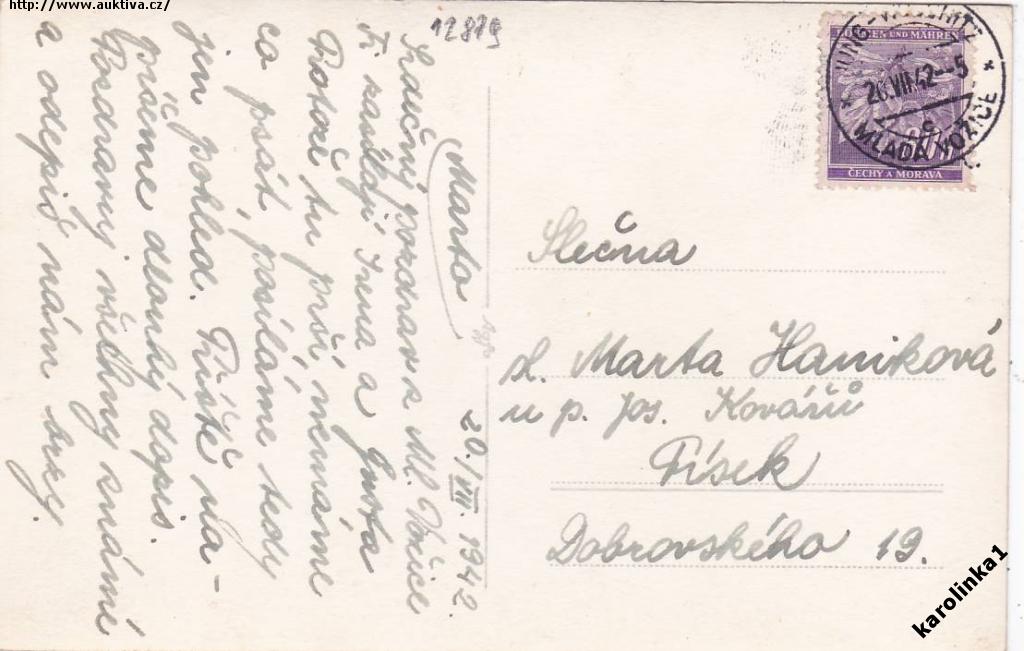 http://www.auktiva.cz/
12879
BÖHMEN UND MÄHREN
JUNG-WOSCHITZ
20.VII.42-5
MLADÁ VOŽICE
ČECHY A MORAVA
Slečna
sl. Marta Haniková
u p. Jos. Kovářů
Písek
Dobrovského 19.
20./VII. 1942.
Marto
Srdečný pozdrav z Ml. Vožice
Ti zasílají Irena a
Protože tu prší, nemáme
co psát, posíláme tedy
jen pohled. Příště na-
píšeme dlouhý dopis.
Pozdravuj všechny známé
a odepiš nám brzy.
karolinka1